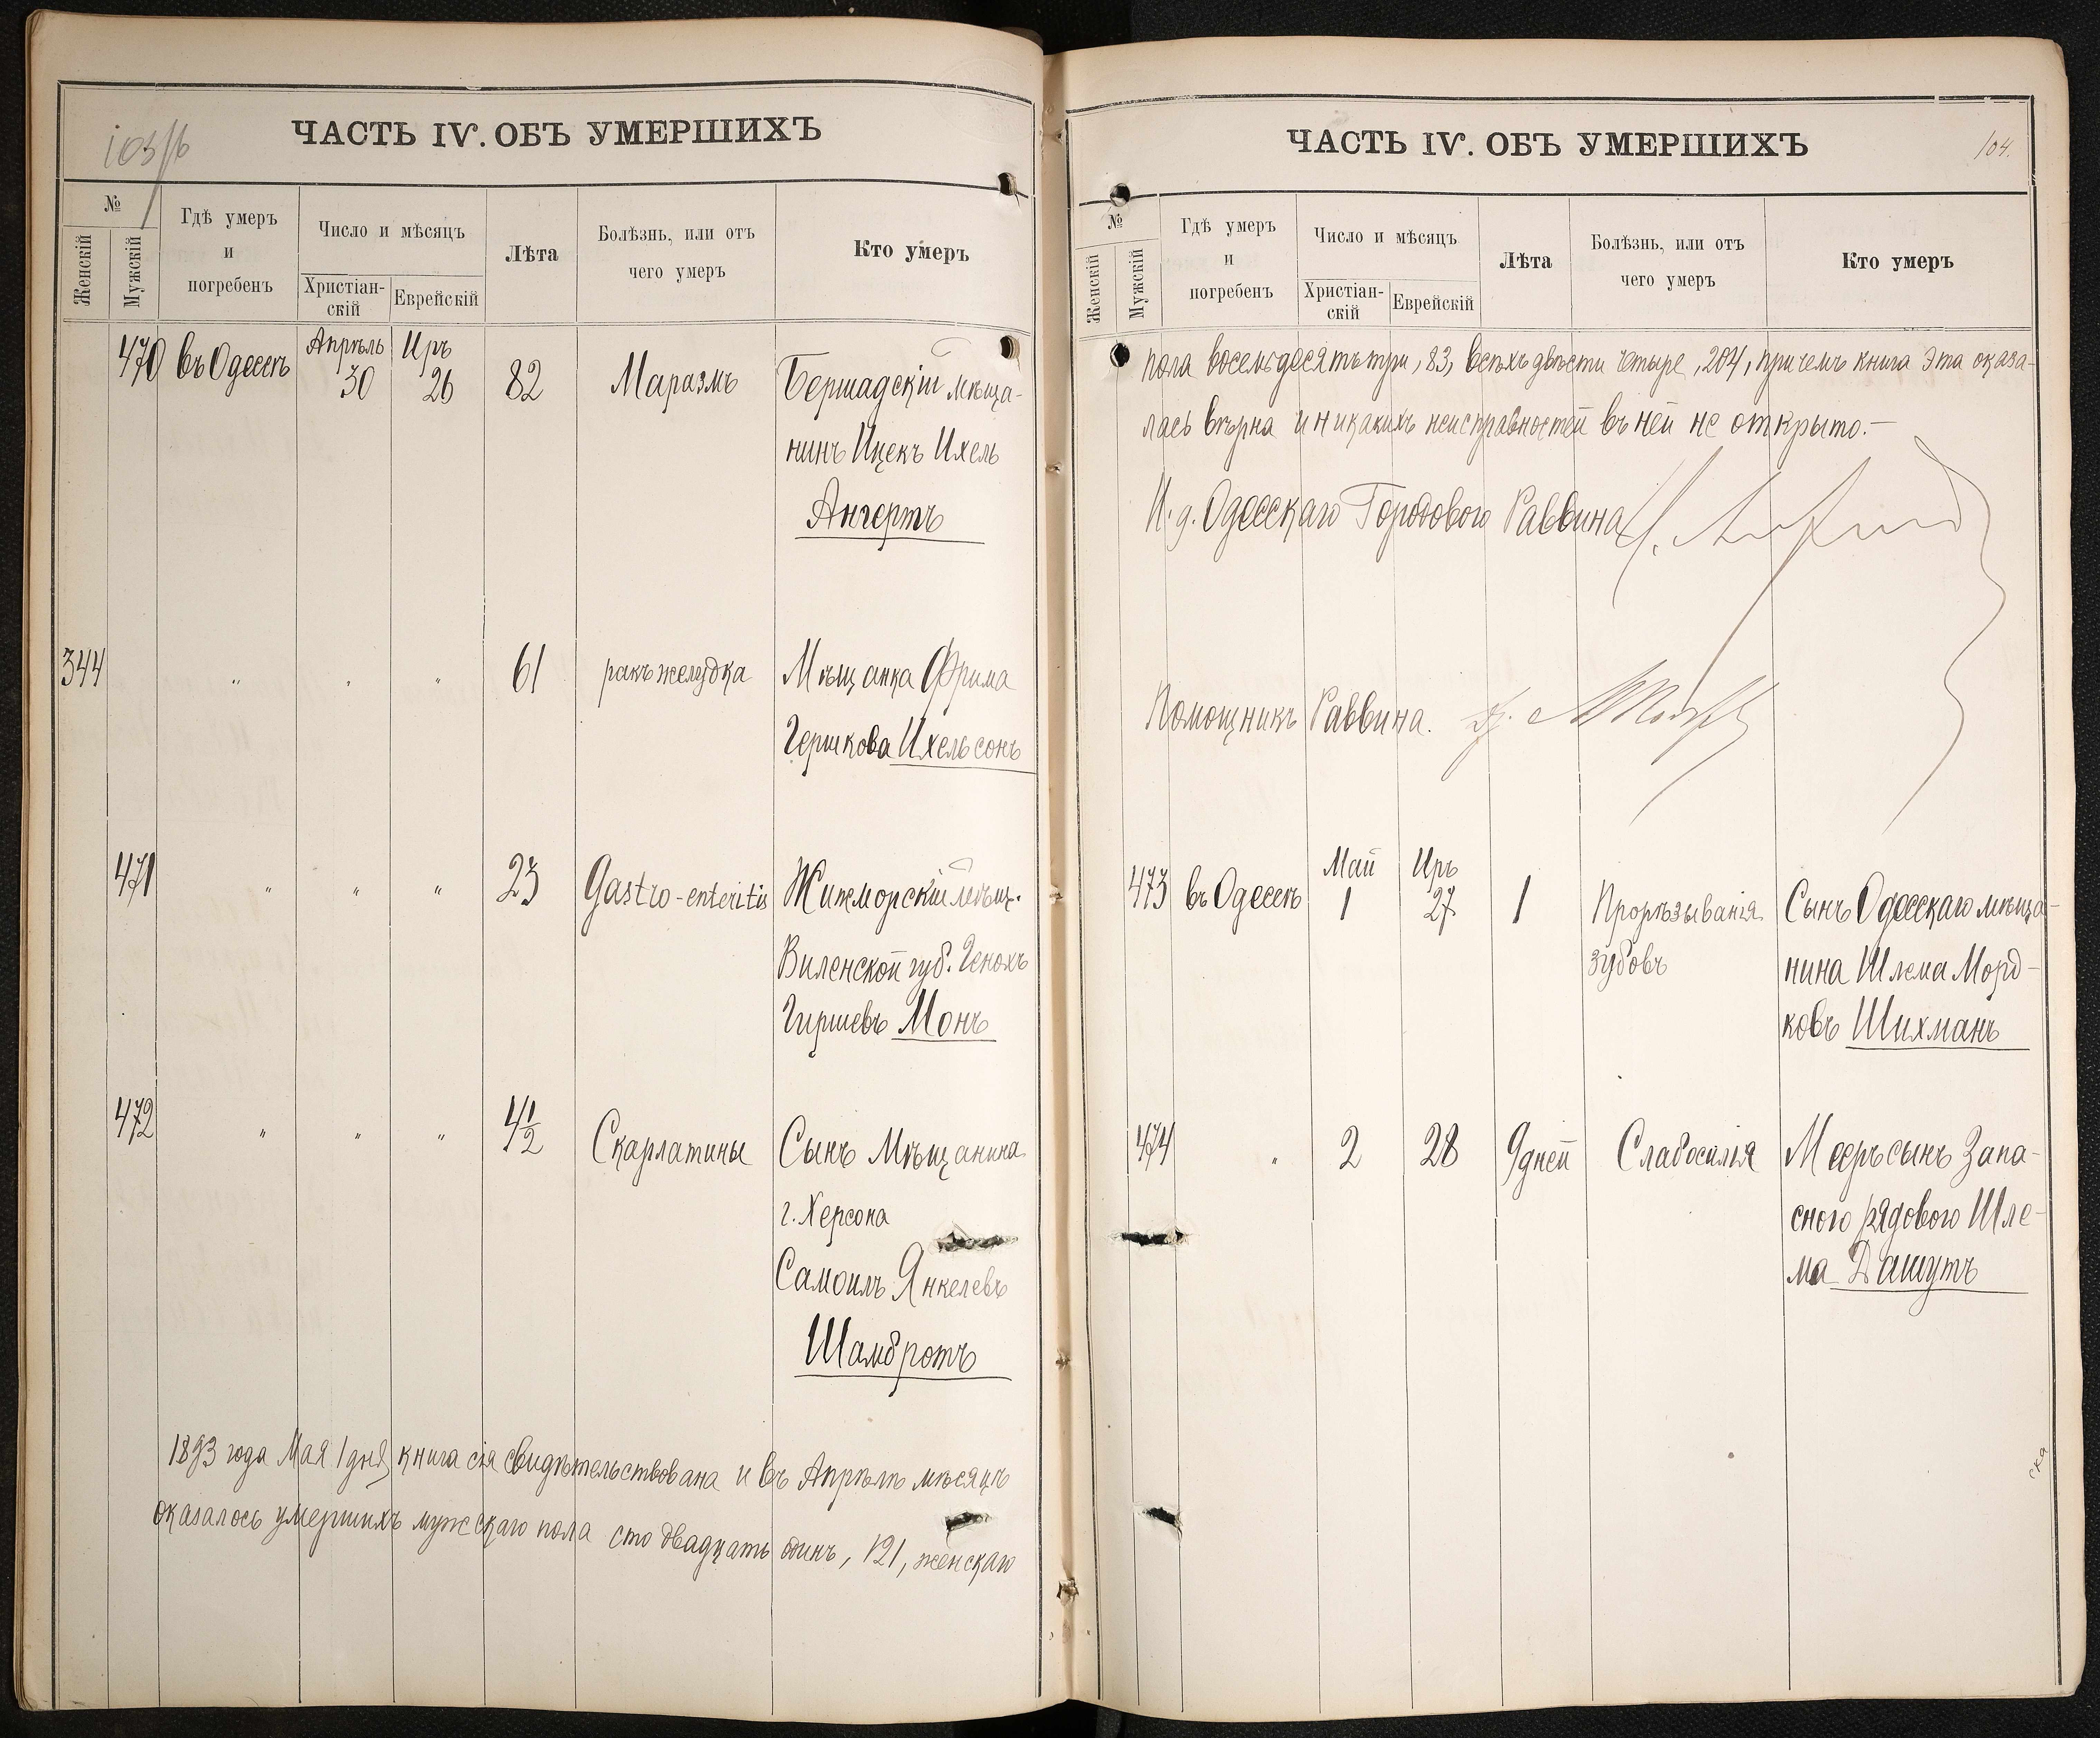 103/б
ЧАСТЬ IV. ОБЪ УМЕРШИХЪ
№
Женскій
Мужскій
Гдѣ умеръ
и
погребенъ
Число и мѣсяцъ
Христіан-
скій
Еврейскій
Лѣта
Болѣзнь, или отъ
чего умеръ
Кто умеръ
470 въ Одессѣ Апрѣль 30 Иръ 26 82 Маразмъ Бершадскій мѣща-
нинъ Ицекъ Ихель
Ангертъ
344 " " " 61 ракъ желудка Мѣщанка Фрима
Гершкова Ихельсонъ
471 " " " 23 Gastro-enteritis Жижморскій мѣщ.
Виленской губ. Генохъ
Гиршевъ Монъ
472 " " " 4½ Скарлатины Сынъ Мѣщанина
г. Херсона
Самоилъ Янкелевъ
Шамбротъ
1893 года Мая 1 дня, книга сія свидѣтельствована и въ Апрѣлѣ мѣсяцѣ
оказалось умершихъ мужскаго пола сто двадцать одинъ, 121, женскаго
104.
ЧАСТЬ IV. ОБЪ УМЕРШИХЪ
№
Женскій
Мужскій
Гдѣ умеръ
и
погребенъ
Число и мѣсяцъ
Христіан-
скій
Еврейскій
Лѣта
Болѣзнь, или отъ
чего умеръ
Кто умеръ
пола восемьдесятъ три, 83, всѣхъ двѣсти четыре, 204, при чемъ книга эта оказа-
лась вѣрна и никакихъ неисправностей въ ней не открыто.—
И. д. Одесскаго Городового Раввина
Помощникъ Раввина.
473 въ Одессѣ Май 1 Иръ 27 1 Прорѣзыванія Сынъ Одесскаго мѣща-
зубовъ нина Шлема Морд-
ковъ Шихманъ
474 " 2 28 9 дней Слабосилія Мееръ сынъ Запа-
сного рядового Шле-
ма Дашутъ
ска